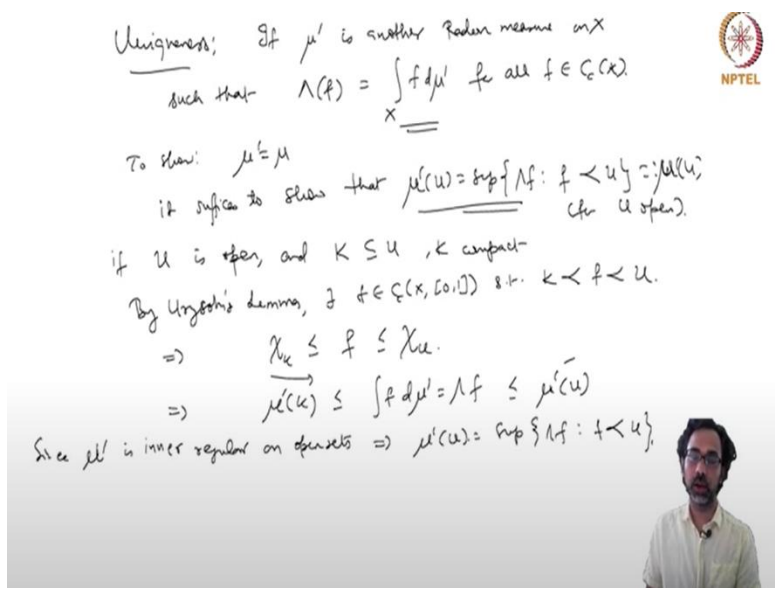 Uniqueness: If μ' is another Radon measure on X
NPTEL
such that Λ(f) = ∫_X f dμ' for all f ∈ C_c(X).
To show: μ' = μ
it suffices to show that μ'(U) = sup{Λf : f ≺ U} =: μ(U)
(for U open).
if U is open, and K ⊆ U, K compact
By Urysohn's Lemma, ∃ f ∈ C_c(X, [0,1]) s.t. K ≺ f ≺ U.
⇒ χ_K ≤ f ≤ χ_U.
⇒ μ'(K) ≤ ∫ f dμ' = Λf ≤ μ'(U)
Since μ' is inner regular on open sets ⇒ μ'(U) = sup{Λf : f ≺ U}.